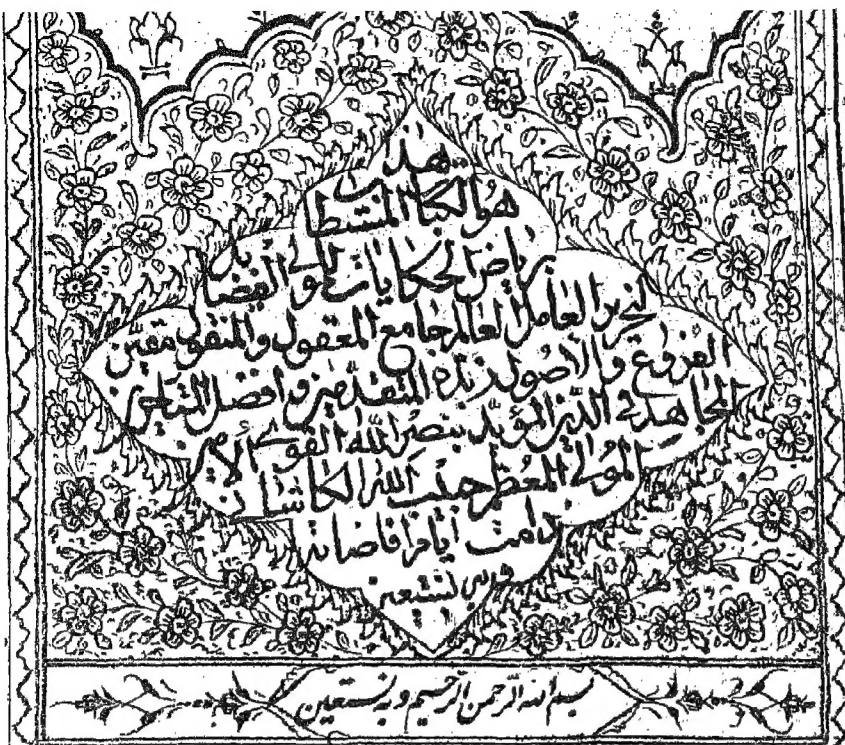 هذا
هو الكتاب المستطاب
برياض الحكايات للمولى الفضايل
النحرير العامل العالم جامع المعقول والمنقول مقنن
الفروع والأصول زبدة المتقدمين وافضل المتأخرين
المجاهد في الدين المؤيد بنصر الله القوي الأمين
المولى المعظم حبيب الله الكاشاني
دامت أيام افاضاته
وبه نستعين
بسم الله الرحمن الرحيم وبه نستعين